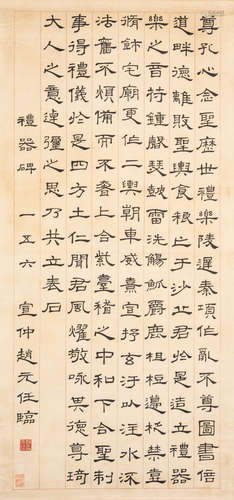 尊孔心念聖歷世禮樂陵遲秦項作亂不尊圖書倍
道畔德離敗聖輿食糧亡于沙丘君於是造立禮器
樂之音苻鍾磬瑟鼓雷洗觴觚爵鹿柤梪籩柉禁壺
脩飾宅廟更作二輿朝車威熹宣抒玄汙以注水流
法舊不煩備而不奢上合紫臺稽之中和下合聖制
事得禮儀於是四方士仁聞君風燿敬咏其德尊琦
大人之意逴彌之思乃共立表石
禮器碑 一五六 宣仲趙元任臨